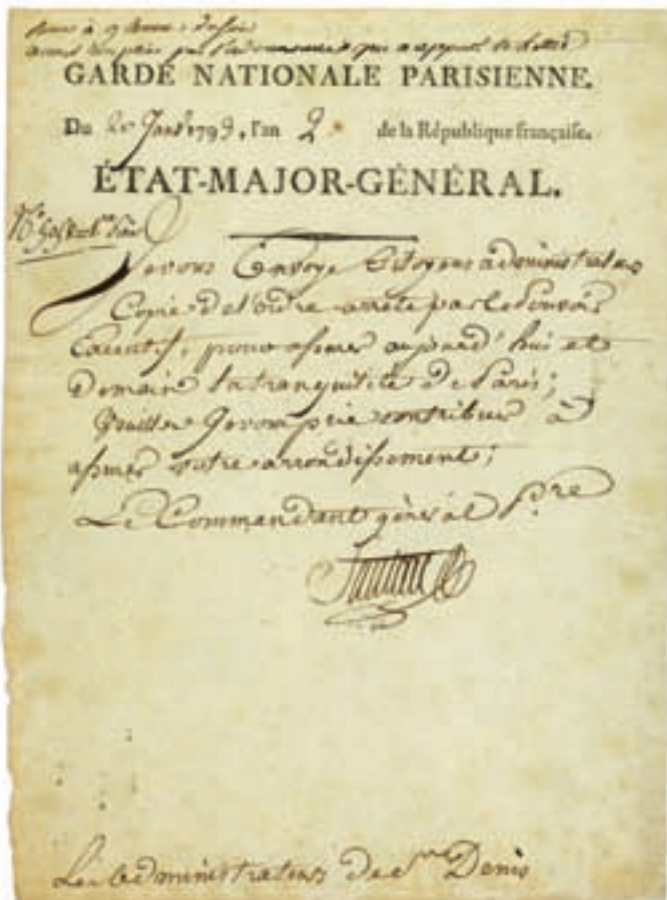 GARDE NATIONALE PARISIENNE.
Du 20 Janv 1793, l'an 2e de la République française.
ÉTAT-MAJOR-GÉNÉRAL.
Je vous Envoye Citoyens administrateurs
Copie de l'ordre arrêté par le Pouvoir
Executif, pour assurer aujourd'hui et
Demain la tranquilité de Paris;
Veuillez Je vous prie contribuer à
assurer votre arrondissement;
Le Commandant général P.re
Santerre
Les administrateurs de St Denis